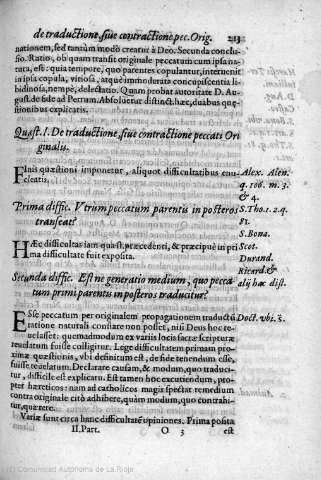 de traductione, siue contractione pec. Orig. 213
nationem, sed tantùm modò creatur à Deo. Secunda conclu-
sio. Ratio, ob quam transit originale peccatum cum ipsa na-
tura, est: quia tempore, quo parentes copulantur, interuenit
in ipsa copula, vitiosa, atque immoderata concupiscentia li-
bidinosa, nempè, delectatio. Quam probat autoritate D. Au-
gust. de fide ad Petrum. Absoluetur distinct. hæc, duabus quæ-
stionibus explicatis.
Quæst. I. De traductione, siue contractione peccati Ori
ginalis.
FInis quæstioni imponetur, aliquot difficultatibus enu-
cleatis.
Alex. Alen.
q. 106. m. 3.
& 4.
Prima diffic. Vtrum peccatum parentis in posteros
transeat?
S. Tho. 1. 2. q.
81.
S. Bona.
HÆc difficultas iam quæst. præcedenti, & præcipuè in pri
ma difficultate fuit exposita.
Scot.
Durand.
Ricard. &
alij hac dist.
Secunda diffic. Est ne generatio medium, quo pecca-
tum primi parentis in posteros traducitur?
ESse peccatum per originalem propagationem traductū
ratione naturali constare non posset, nisi Deus hoc re-
uelasset: quemadmodum ex varijs locis sacræ scripturæ
reuelatum fuisse colligitur. Lege difficultatem primam pro-
ximæ quæstionis, vbi definitum est, de fide tenendum esse,
fuisse reuelatum. Declarare causam, & modum, quo traduci-
tur, difficile est explicatu. Est tamen hoc excutiendum, pro-
pter hæreticos: nam ad catholicos magis spectat remedium
contra originale citò adhibere, quàm modum, quo contrahi-
tur, quærere.
Doct. vbi. s.
Variæ sunt circa hanc difficultatē opiniones. Prima posita
II. Part. O 3 est
(c) Comunidad Autónoma de La Rioja